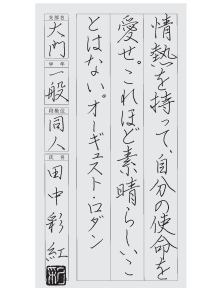 情熱を持って、自分の使命を
愛せ。これほど素晴らしいこ
とはない。オーギュスト・ロダン
支部名
大門
学年
一般
段級位
同人
氏名
田中彩紅